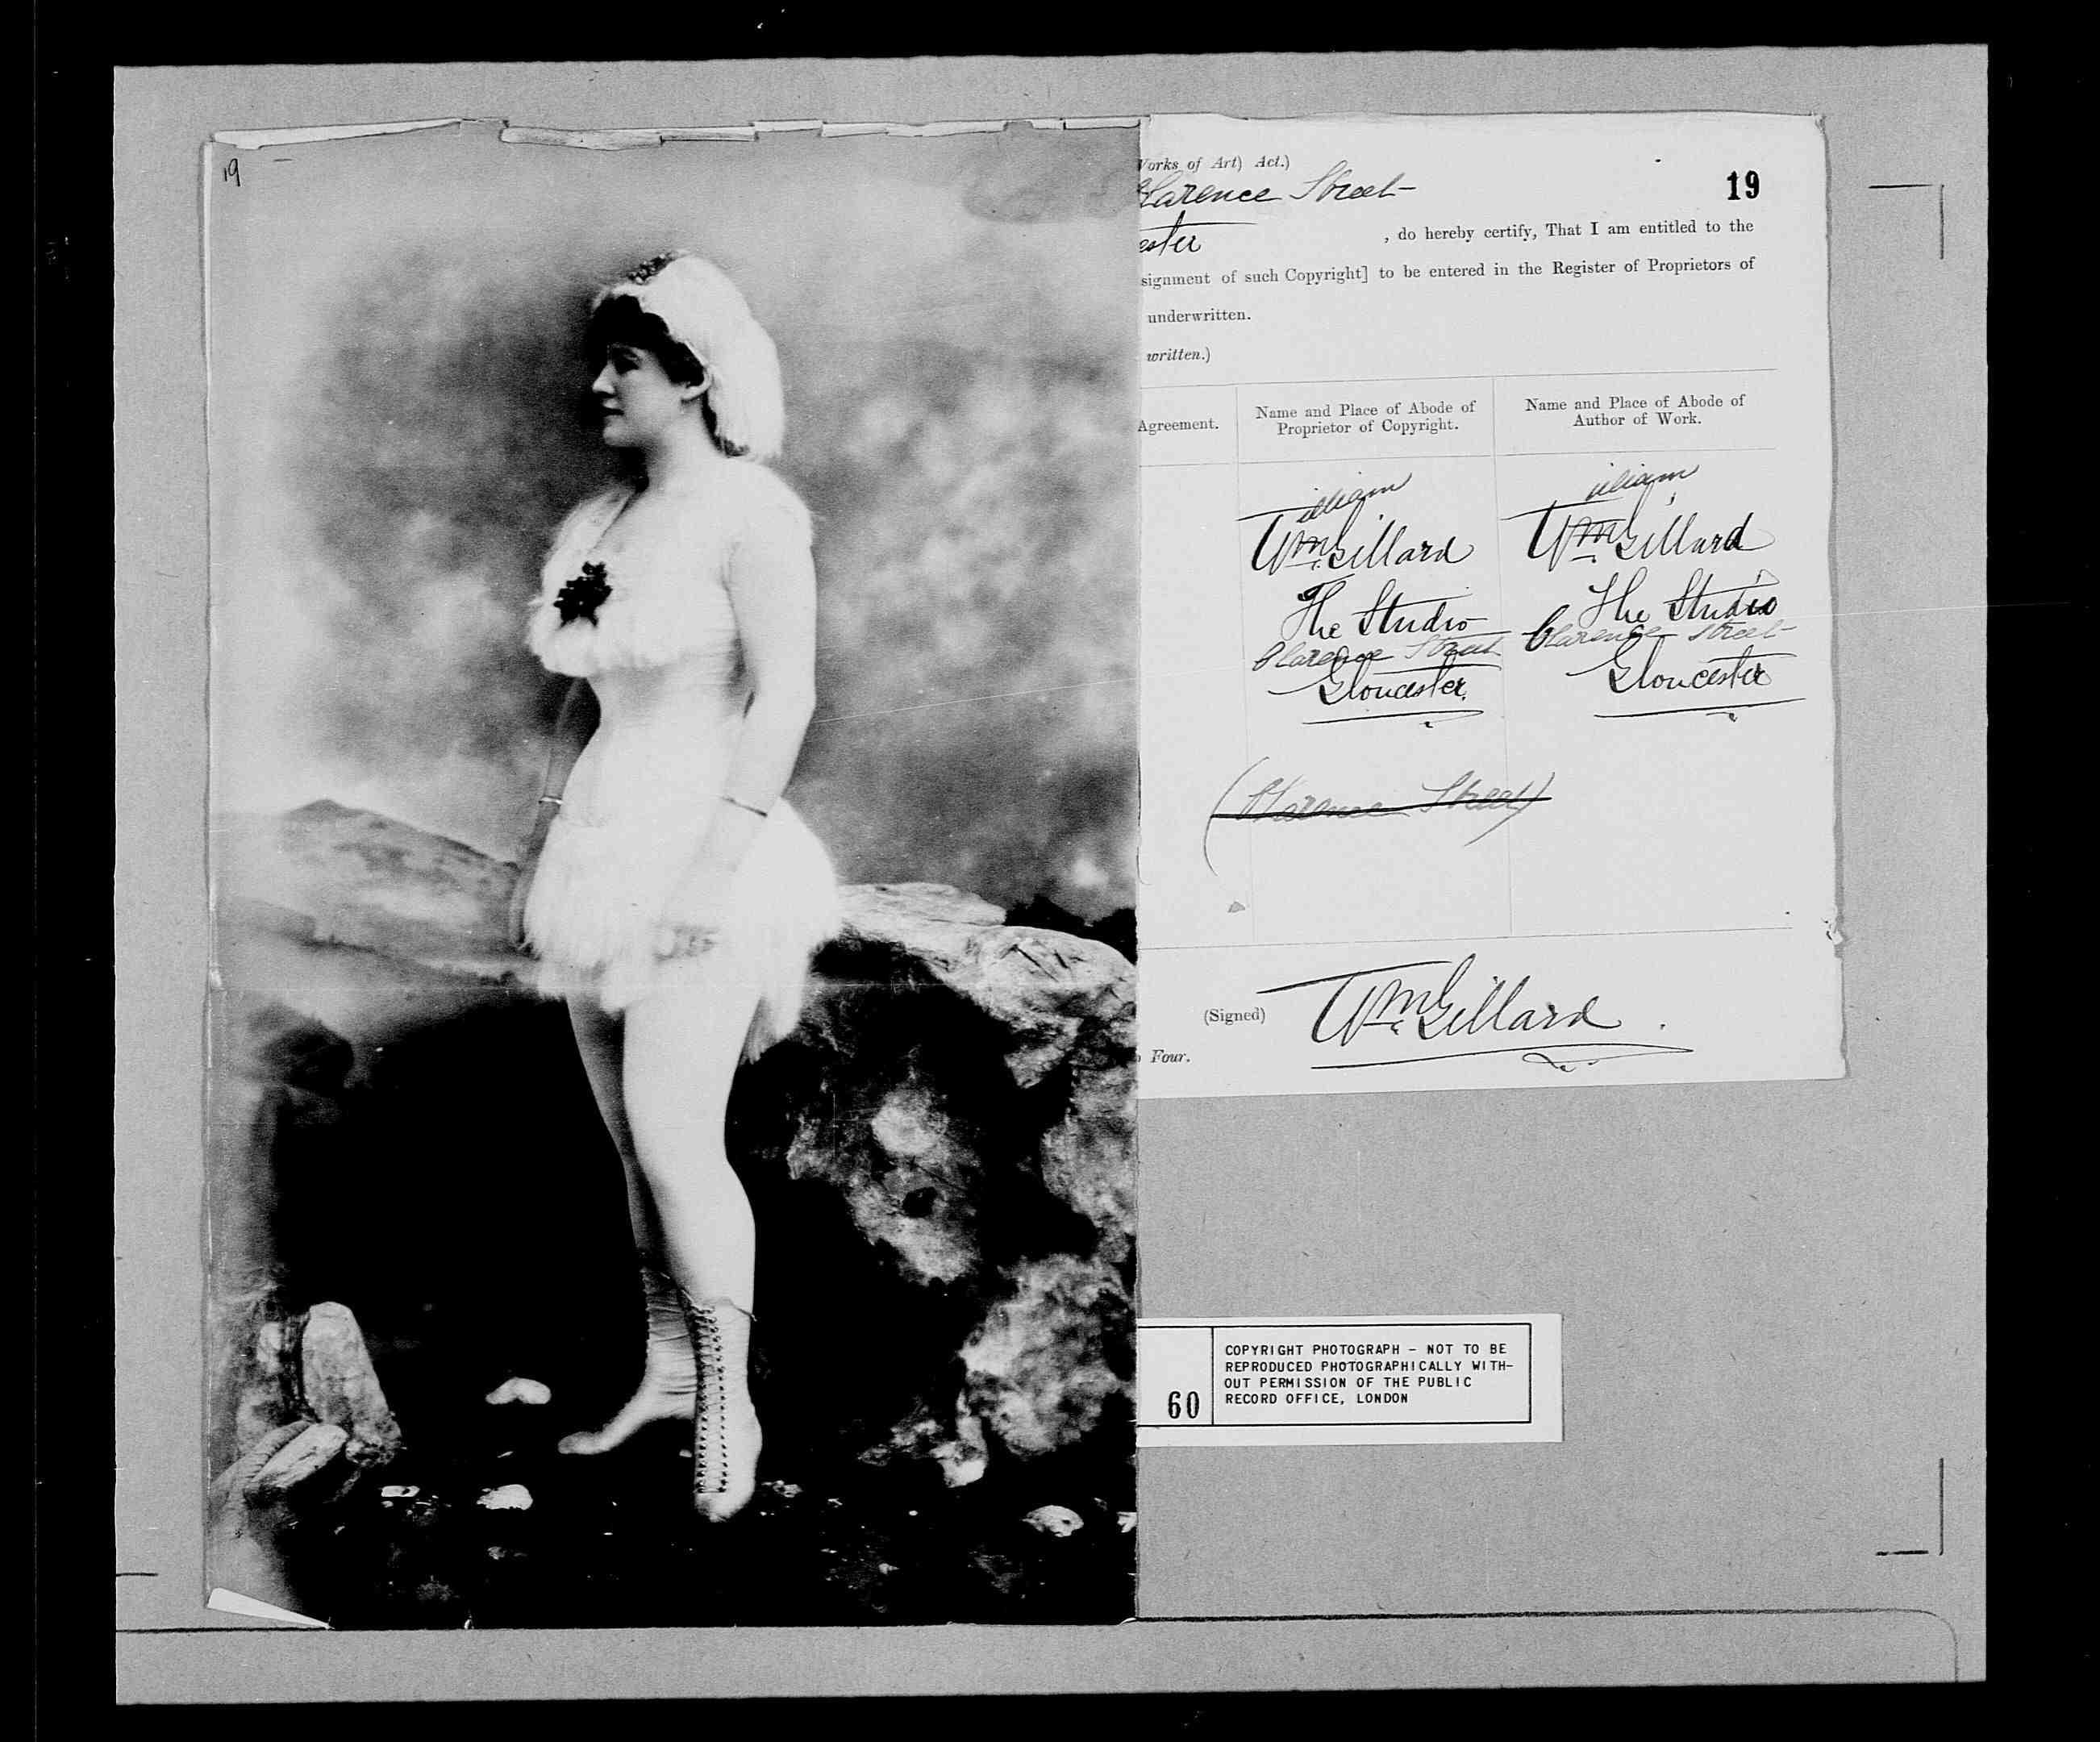 19
Works of Art) Act.)
Clarence Street
19
ester
, do hereby certify, That I am entitled to the
signment of such Copyright] to be entered in the Register of Proprietors of
underwritten.
written.)
Agreement.
Name and Place of Abode of
Proprietor of Copyright.
Name and Place of Abode of
Author of Work.
illiam
Wm. Gillard
The Studio
Clarence Street
Gloucester.
illiam
Wm. Gillard
The Studio
Clarence Street
Gloucester
(Clarence Street)
(Signed)
Wm. Gillard.
Four.
60
COPYRIGHT PHOTOGRAPH - NOT TO BE
REPRODUCED PHOTOGRAPHICALLY WITH-
OUT PERMISSION OF THE PUBLIC
RECORD OFFICE, LONDON